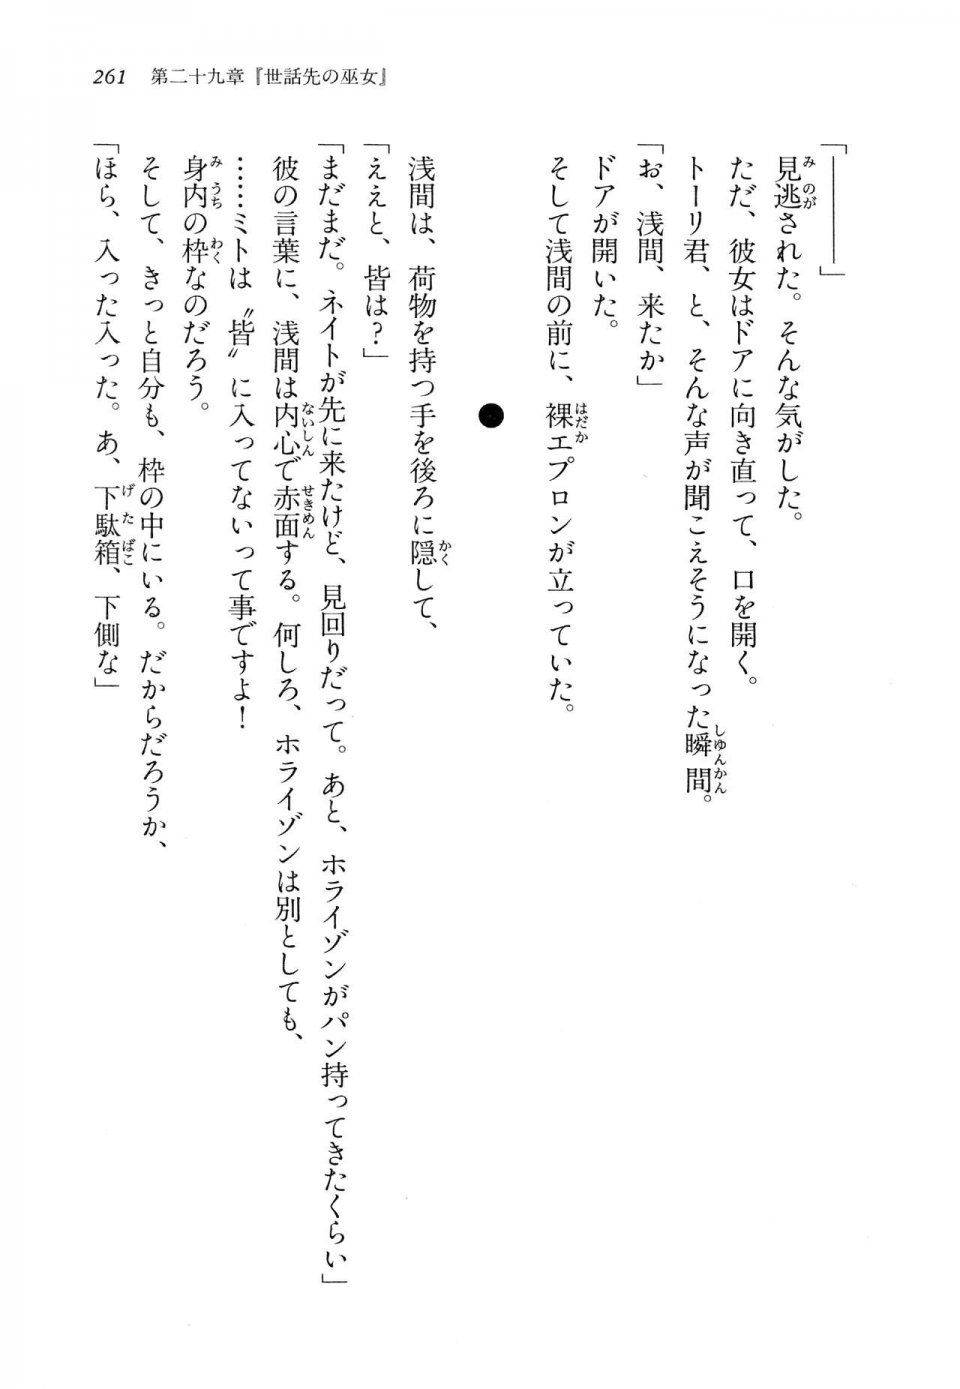 261 第二十九章『世話先の巫女』
「―――」
見逃された。そんな気がした。
ただ、彼女はドアに向き直って、口を開く。
トーリ君、と、そんな声が聞こえそうになった瞬間。
「お、浅間、来たか」
ドアが開いた。
そして浅間の前に、裸エプロンが立っていた。
●
浅間は、荷物を持つ手を後ろに隠して、
「ええと、皆は？」
「まだまだ。ネイトが先に来たけど、見回りだって。あと、ホライゾンがパン持ってきたくらい」
彼の言葉に、浅間は内心で赤面する。何しろ、ホライゾンは別としても、
……ミトは〝皆〟に入ってないって事ですよ！
身内の枠なのだろう。
そして、きっと自分も、枠の中にいる。だからだろうか、
「ほら、入った入った。あ、下駄箱、下側な」